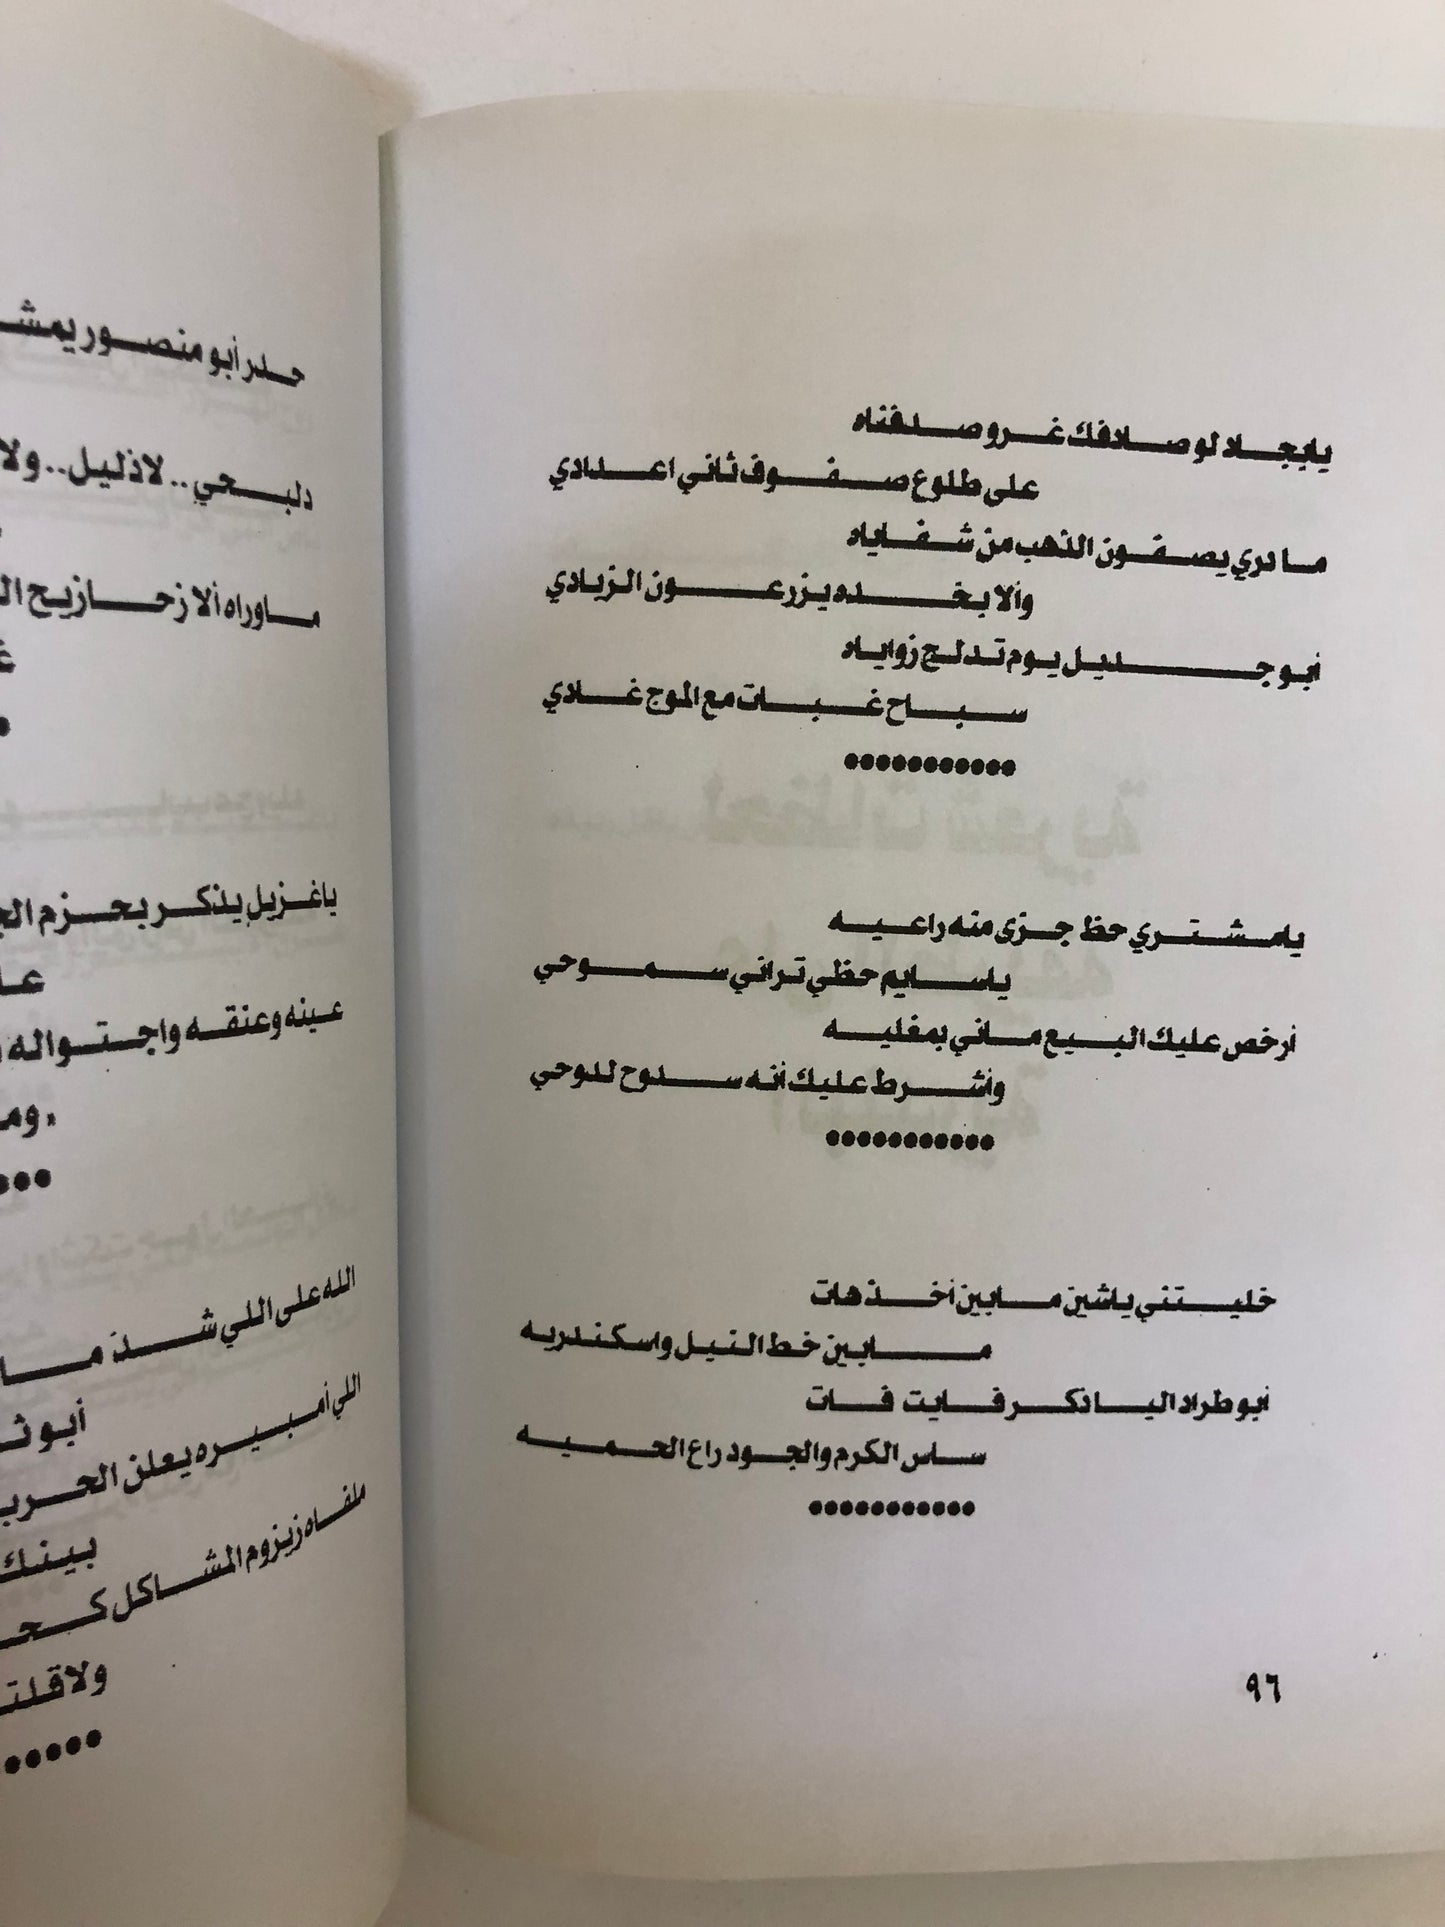 يابجلاد لو صلافك غرو صدفناه
على طلوع صفوف ثاني اعدادي
مادري يصفون الذهب من شفاياه
وألا بخده يزرعون الزيادي
أبو جديل يوم تدلج زواياه
سباح غبات مع الموج غادي
●●●●●●●●●●●
يامشتري حظ جزى منه راعيه
ياسايم حظي تراني سموحي
أرخص عليك البيع ماني بمغليه
وأشرط عليك أنه سدوح للدوحي
●●●●●●●●●●●
خليتني ياشين مابين أخذ هات
مابين خط النيل واسكندريه
أبو طراد اليا ذكر فايت فات
ساس الكرم والجود راع الحميه
●●●●●●●●●●●
٩٦
حدر أبو منصور يمش
دلبحي.. لاذليل.. ولا
ماوراه ألا زحازيح ال
ياغزيل يذكر بحزم
عينه وعنقه واجتواله
وم
الله على اللي شذ ما
أبو ث
اللي أمبيره يعلن الحرب
بينك
ملفاه زيزوم المشاكل كح
ولاقلت
●●●●●